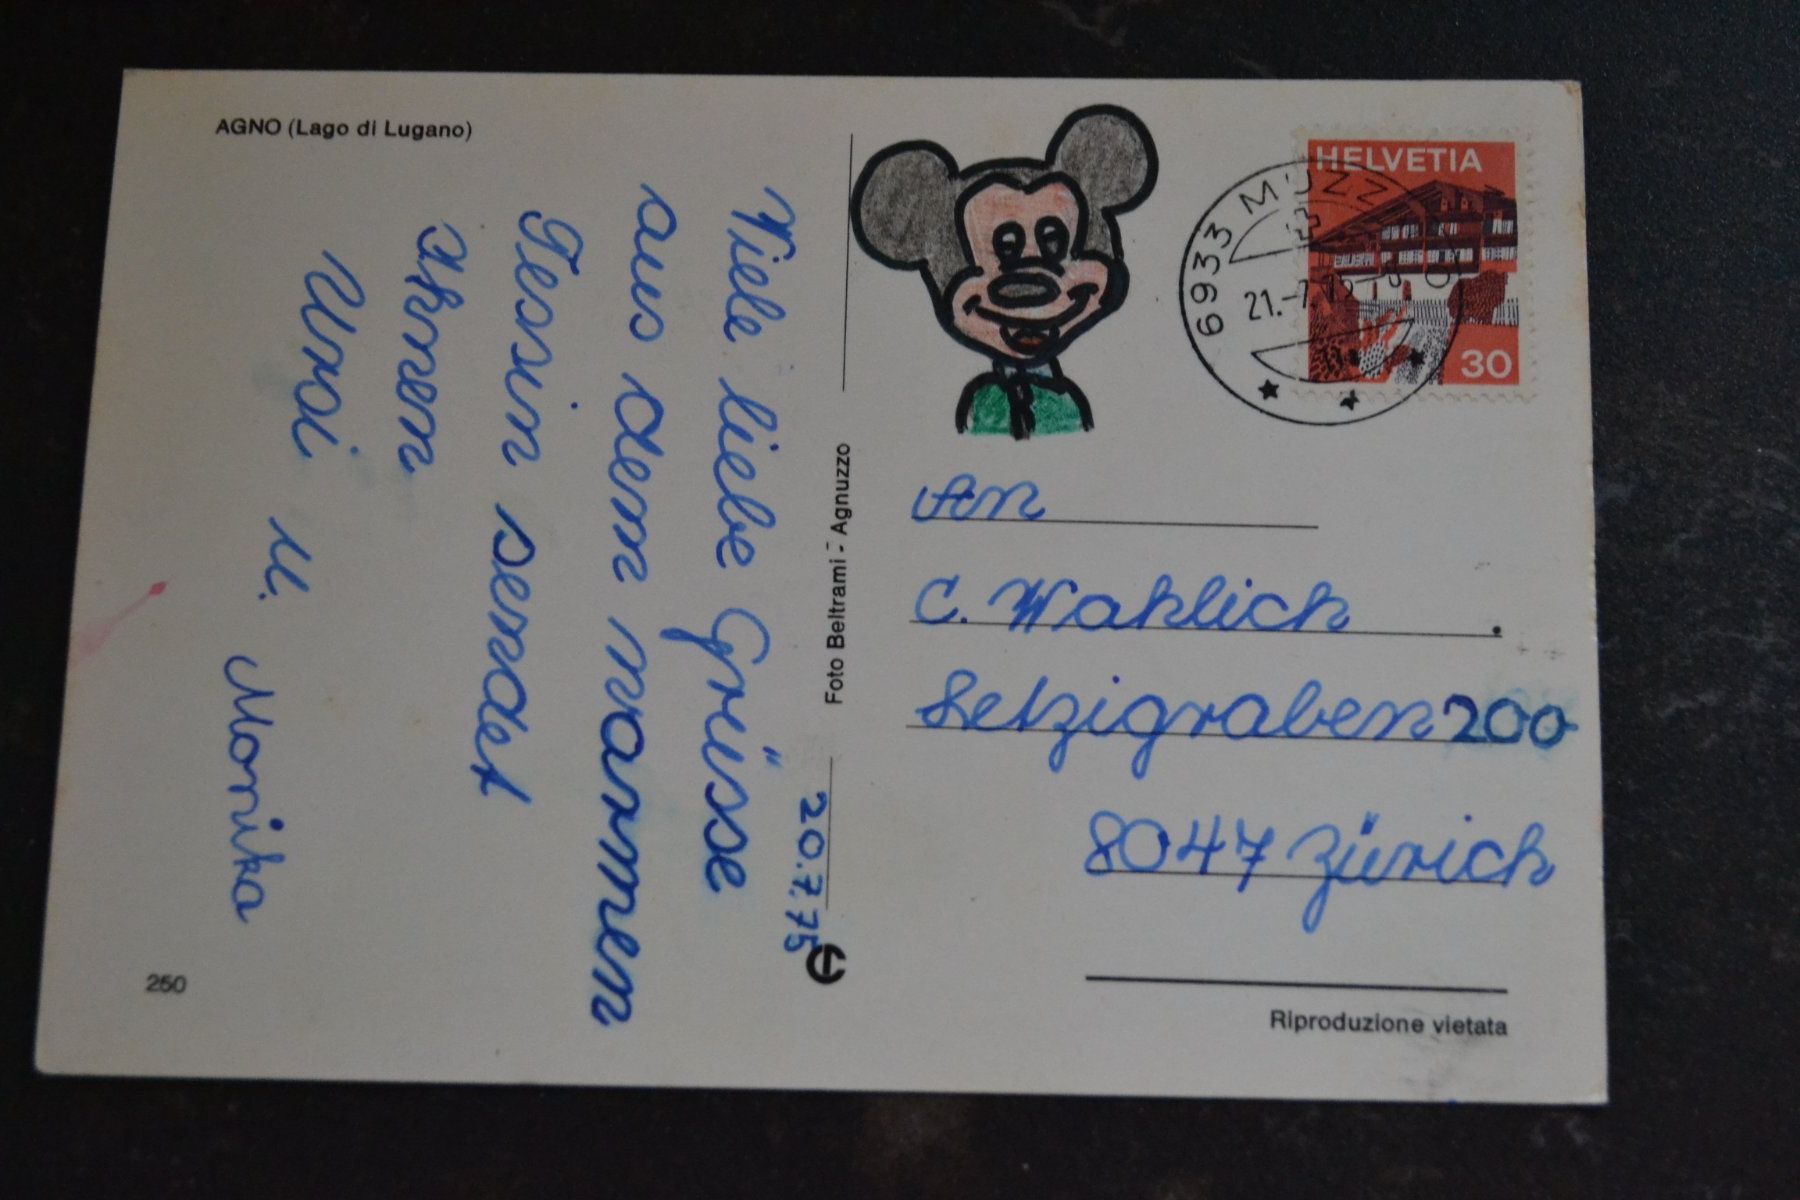 AGNO (Lago di Lugano)
20.7.75
Viele liebe Grüsse
aus dem warmen
Tessin sendet
Ihnen
Uroi u. Monika
250
Foto Beltrami - Agnuzzo
HELVETIA
30
6933 MUZZ
21.-7.75
An
C. Wahlich
Letzigraben 200
8047 Zürich
Riproduzione vietata